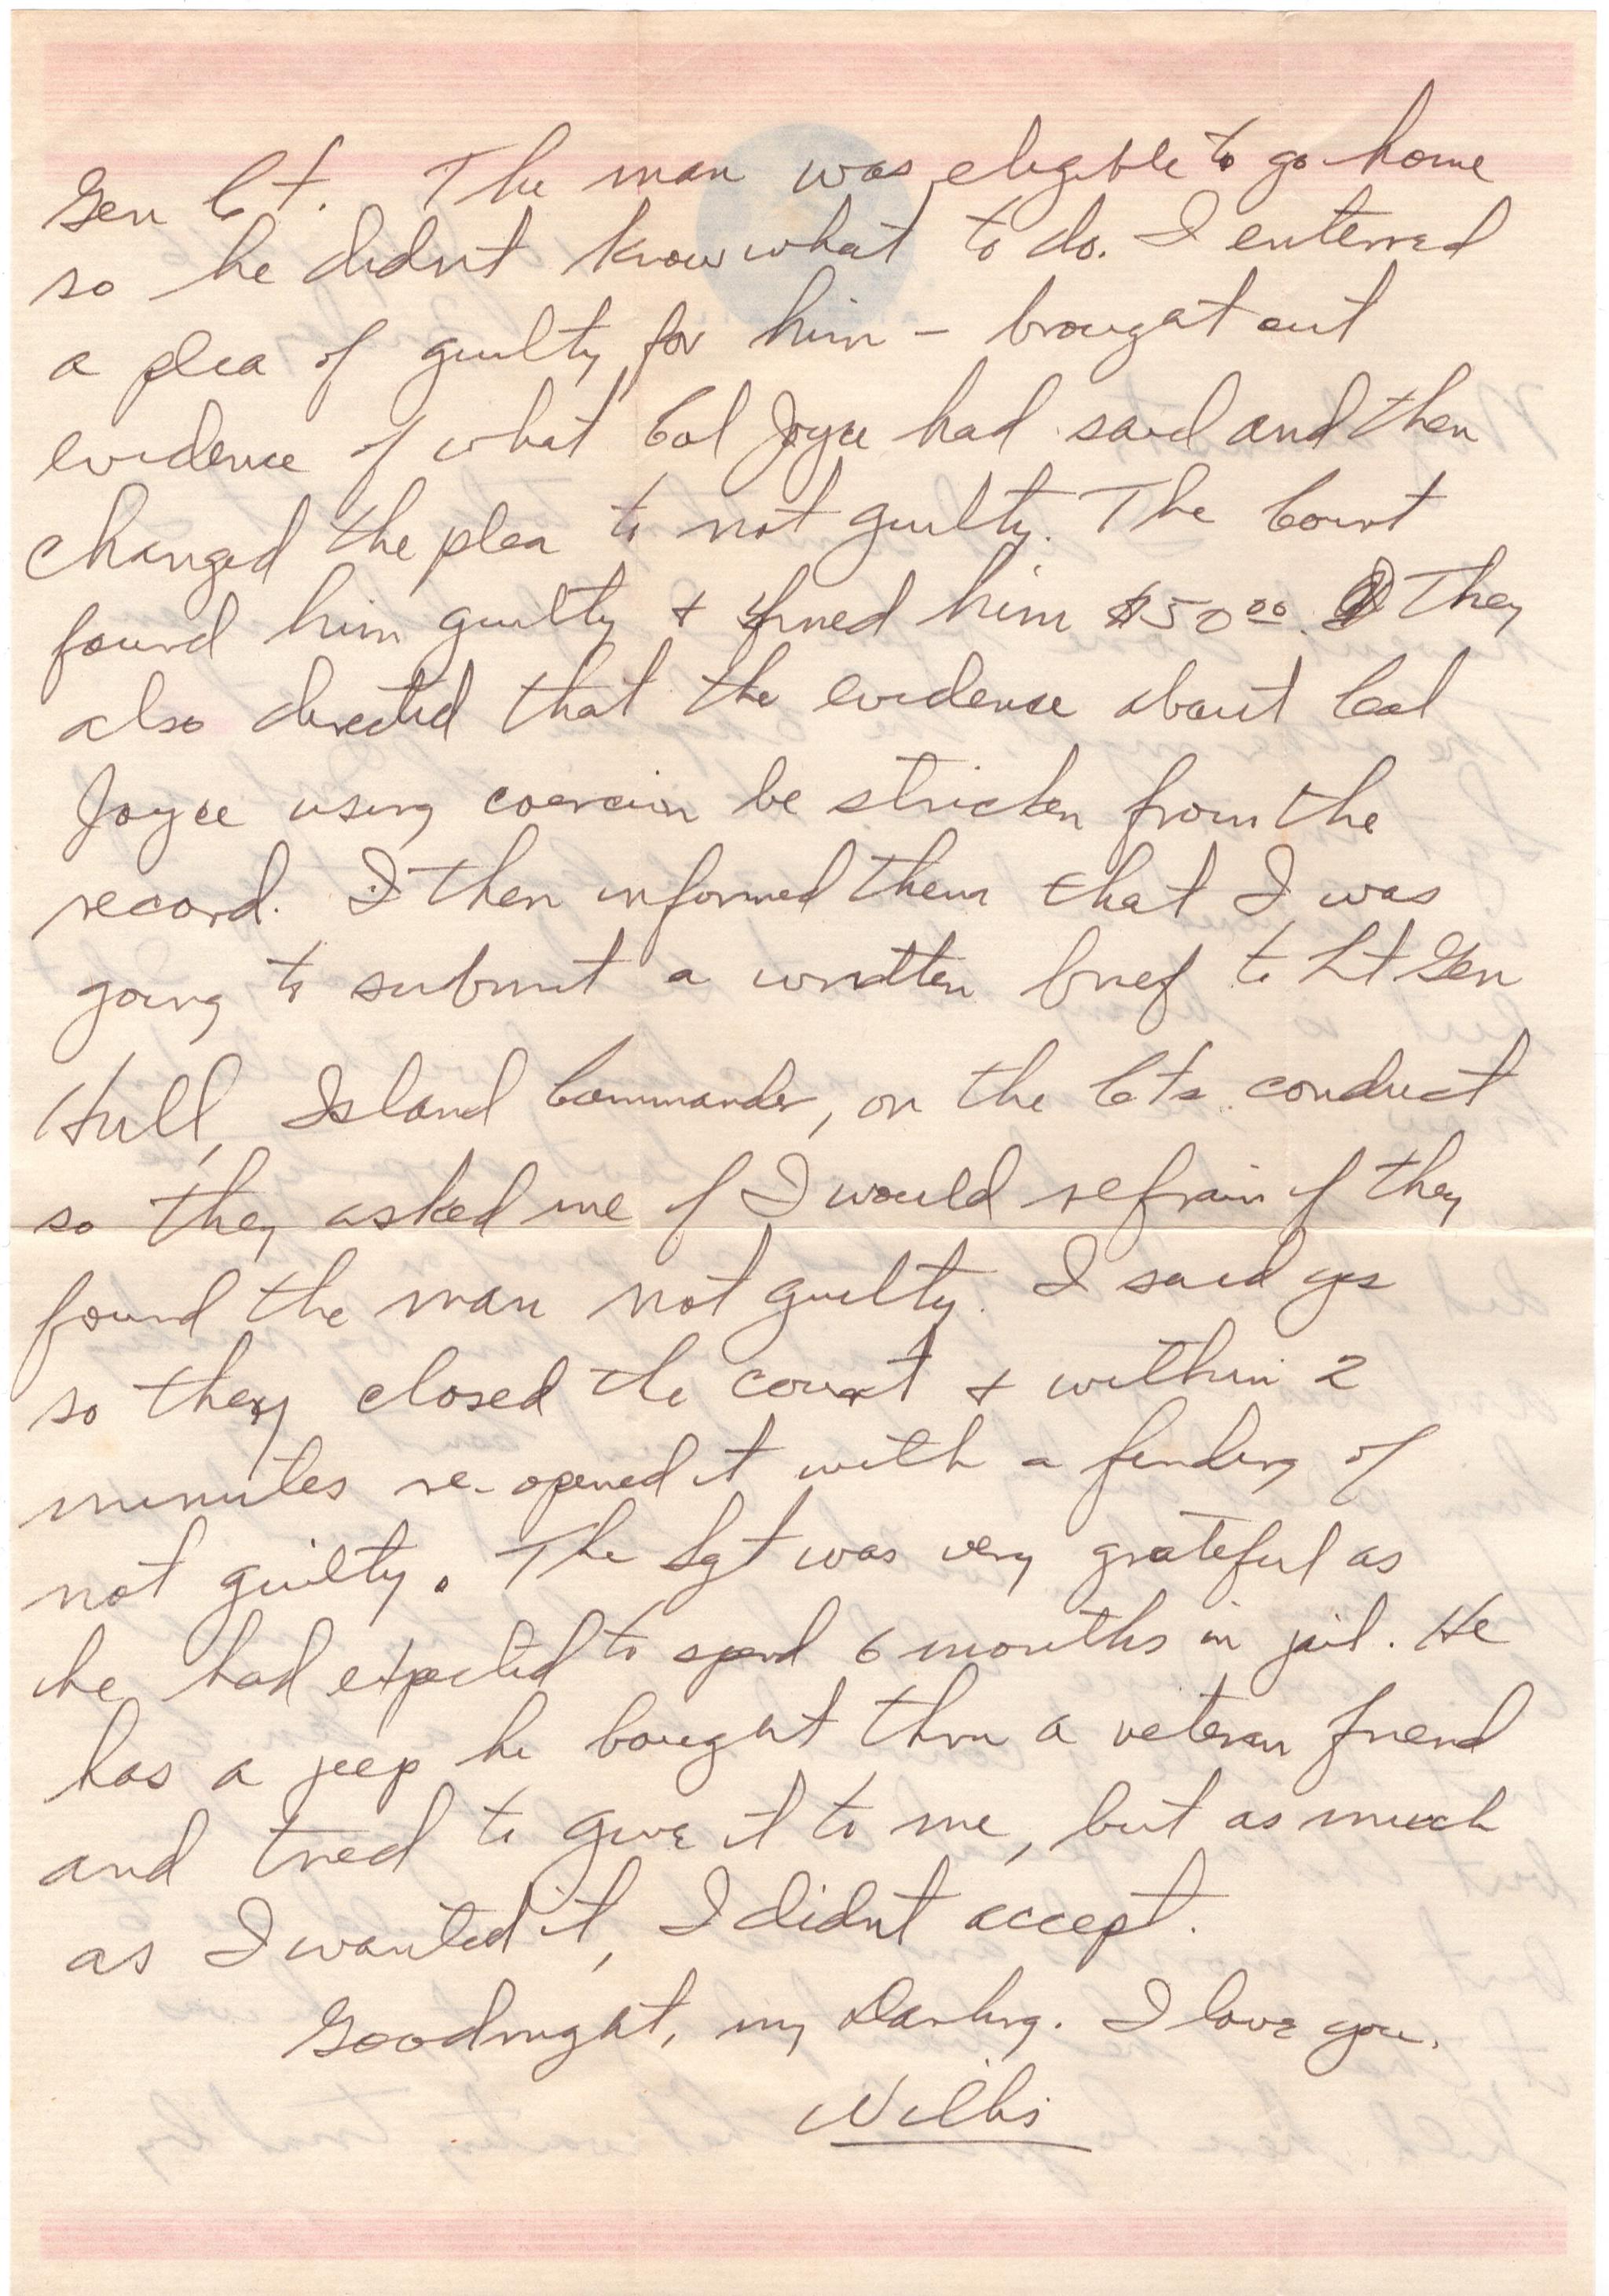 Gen Ct. The man was eligible to go home
so he didn't know what to do. I enterred
a plea of guilty for him - brought out
evidence of what Col Joyce had said and then
changed the plea to not guilty. The Court
found him guilty & fined him $50.00. They
also directed that the evidence about Col
Joyce using coercion be stricken from the
record. I then informed them that I was
going to submit a written brief to Lt Gen
Hull, Island Commander, on the Cts conduct
so they asked me if I would refrain if they
found the man not guilty. I said yes
so they closed the court & within 2
minutes re-opened it with a finding of
not guilty. The Sgt was very grateful as
he had expected to spend 6 months in jail. He
has a jeep he bought thru a veteran friend
and tried to give it to me, but as much
as I wanted it, I didn't accept.
Goodnight, my Darling. I love you.
Willis